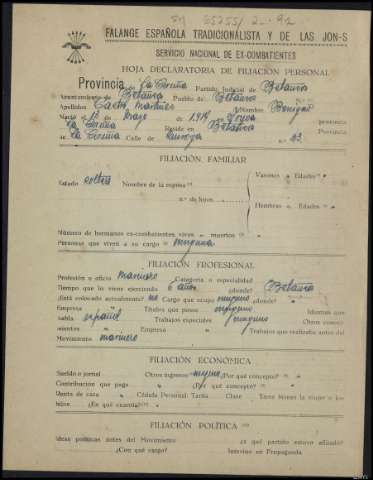 FALANGE ESPAÑOLA TRADICIONALISTA Y DE LAS JON-S
SERVICIO NACIONAL DE EX-COMBATIENTES
HOJA DECLARATORIA DE FILIACIÓN PERSONAL
Provincia de La Coruña Partido Judicial de Betanzos
Ayuntamiento de Betanzos Pueblo de Betanzos
Apellidos Castro Martínez Nombre Benigno
Nació el 1º Mayo de 1914 en provincia
La Coruña Reside en Betanzos Provincia
La Coruña Calle de n.º 23
FILIACIÓN FAMILIAR
Estado soltero Nombre de la esposa
Varones Edades
n.º de hijos
Hembras Edades
Número de hermanos ex-combatientes vivos muertos
Personas que viven a su cargo ninguna
FILIACIÓN PROFESIONAL
Profesión u oficio marinero Categoría o especialidad
Tiempo que lo viene ejerciendo 6 años ¿dónde? Betanzos
¿Está colocado actualmente? no Cargo que ocupa ninguno ¿dónde?
Empresa Títulos que posee ninguno Idiomas que
habla español Trabajos especiales ninguno Otros conoci-
mientos Empresa Trabajos que realizaba antes del
Movimiento marinero
FILIACIÓN ECONÓMICA
Sueldo o jornal Otros ingresos ninguno ¿Por qué concepto?
Contribución que paga ¿Por qué concepto?
Renta de casa Cédula Personal Tarifa Clase ¿Tiene bienes la mujer o los
hijos ¿En qué cuantía?
FILIACIÓN POLÍTICA
Ideas políticas antes del Movimiento ¿a qué partido estuvo afiliado?
¿Con qué cargo? Intervino en Propaganda